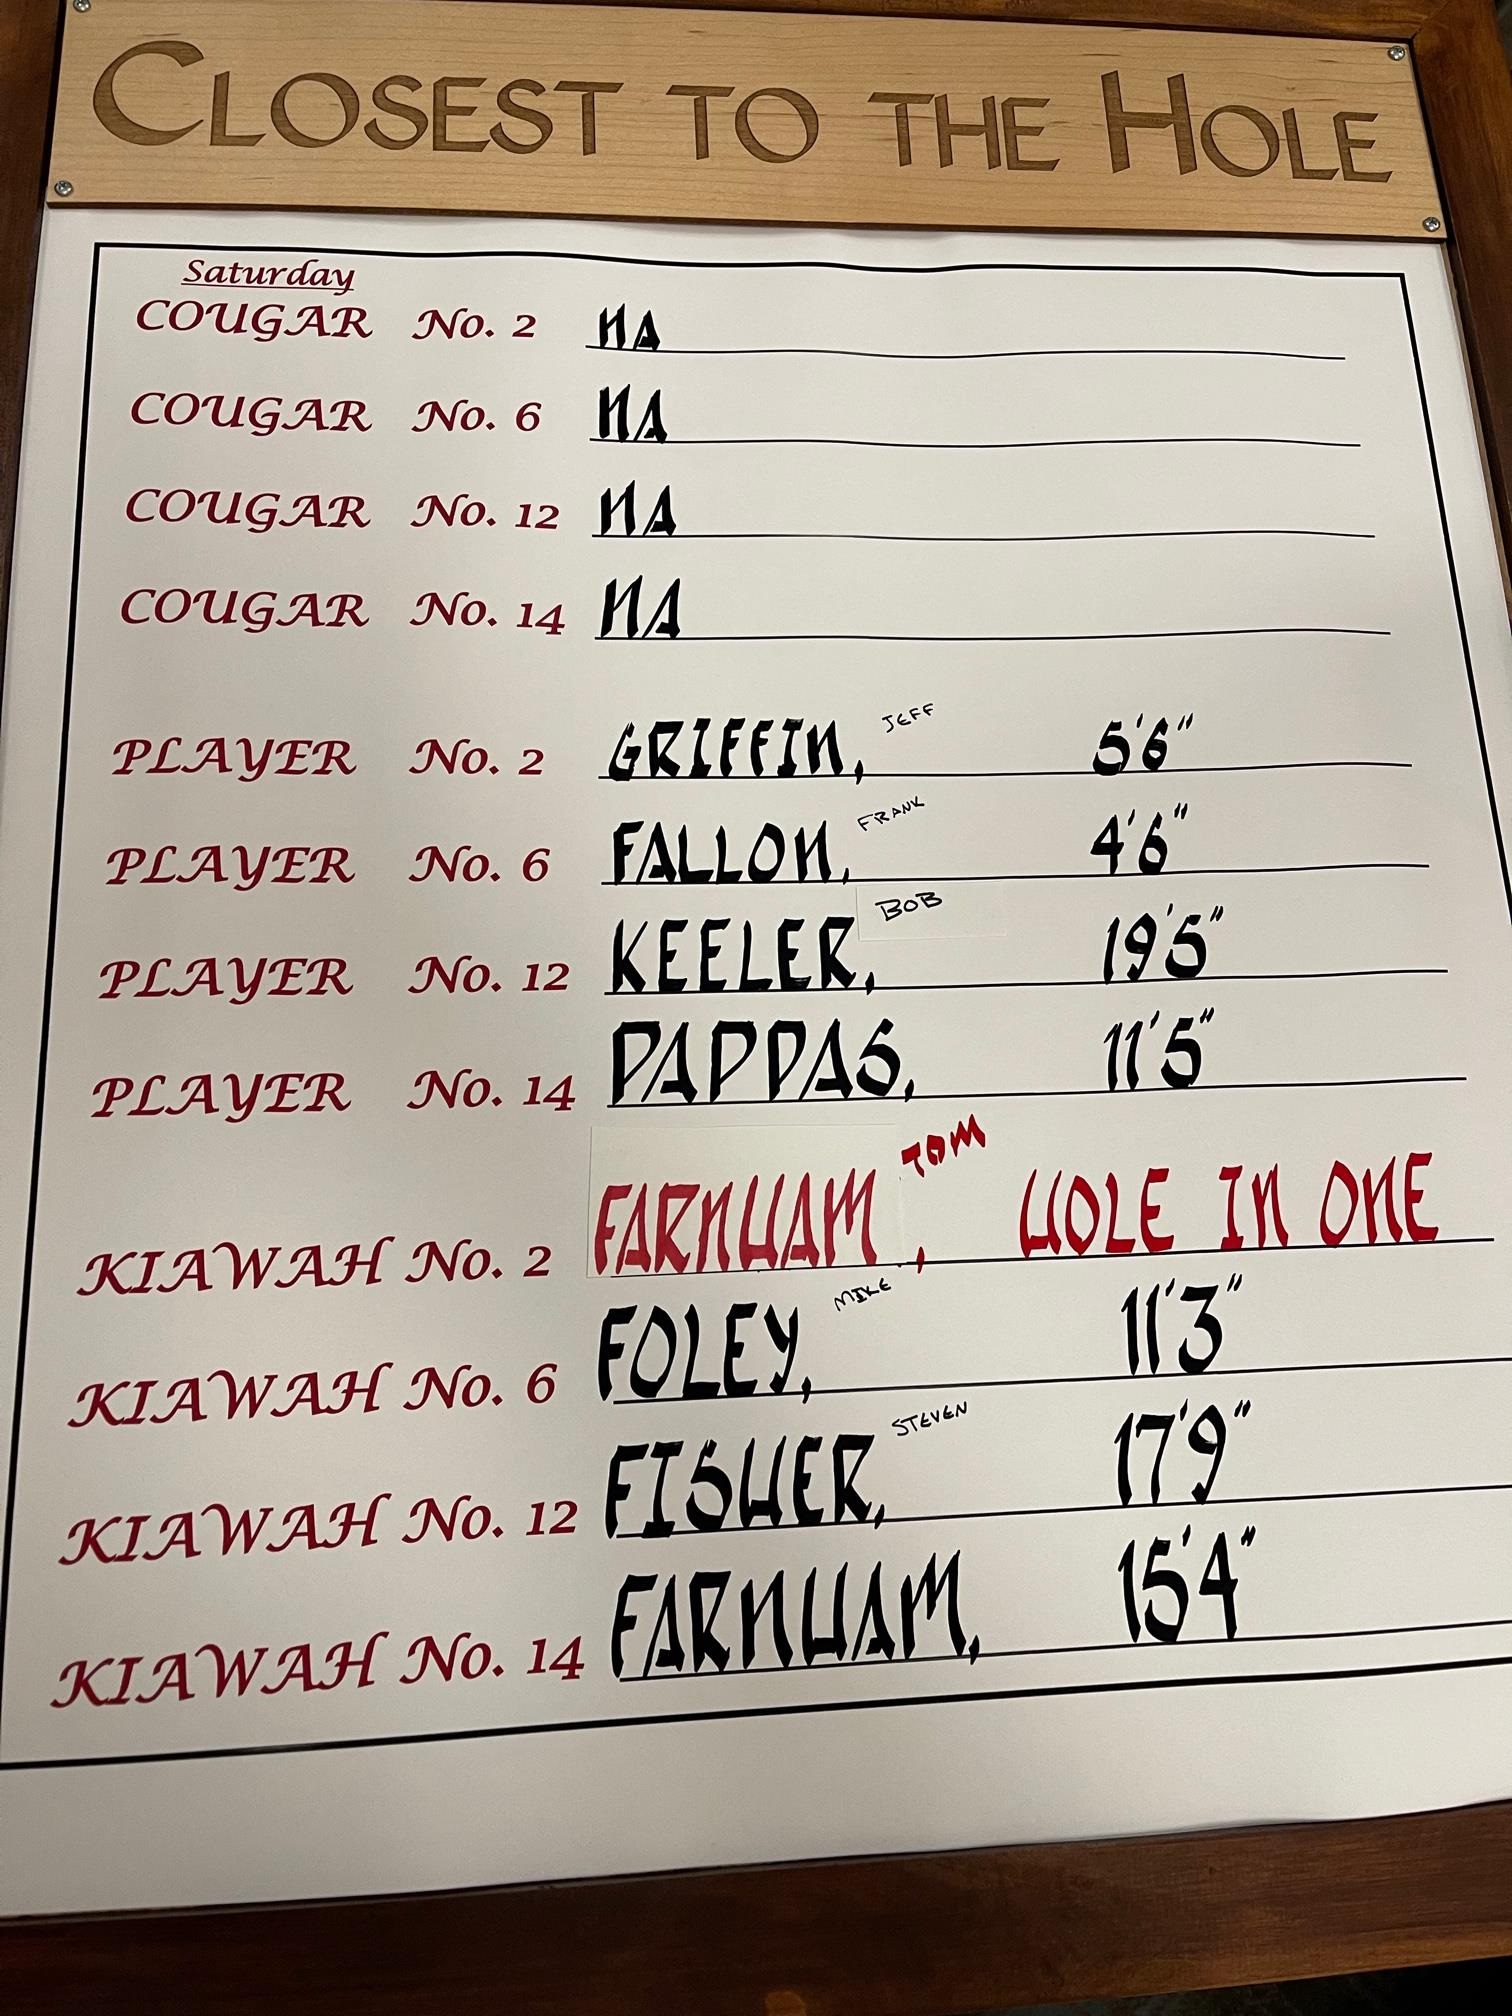 CLOSEST TO THE HOLE
Saturday
COUGAR No. 2 NA
COUGAR No. 6 NA
COUGAR No. 12 NA
COUGAR No. 14 NA
PLAYER No. 2 GRIFFIN, JEFF 5'6"
PLAYER No. 6 FALLON, FRANK 4'6"
PLAYER No. 12 KEELER, BOB 19'5"
PLAYER No. 14 PAPPAS, 11'5"
KIAWAH No. 2 FARNHAM, TOM HOLE IN ONE
KIAWAH No. 6 FOLEY, MIKE 11'3"
KIAWAH No. 12 FISHER, STEVEN 17'9"
KIAWAH No. 14 FARNHAM, 15'4"